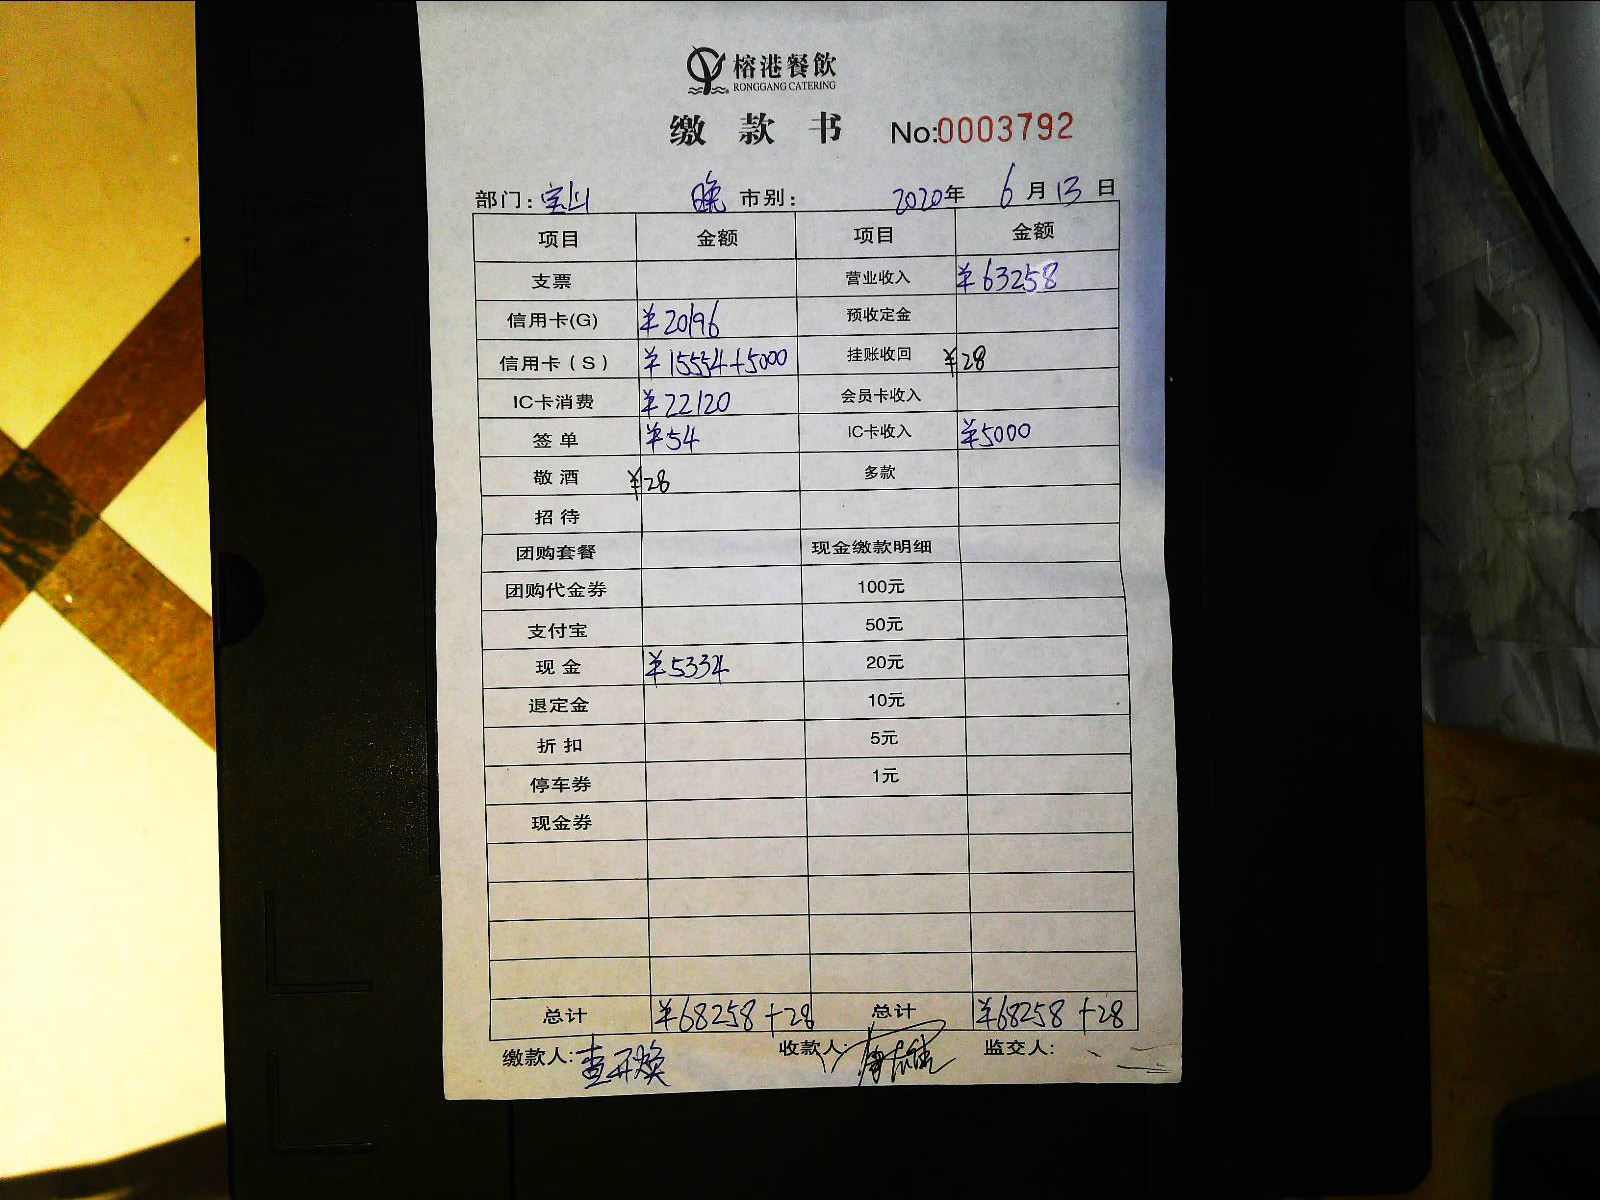 榕港餐飲
RONGGANG CATERING
缴 款 书 No:0003792
部门: 宝山 晚 市别: 2020年 6月13日
项目 金额 项目 金额
支票 营业收入 ¥63258
信用卡(G) ¥20196 预收定金
信用卡(S) ¥15554+5000 挂账收回 ¥28
IC卡消费 ¥22120 会员卡收入
签单 ¥54 IC卡收入 ¥5000
敬酒 ¥28 多款
招待
团购套餐 现金缴款明细
团购代金券 100元
支付宝 50元
现金 ¥5334 20元
退定金 10元
折扣 5元
停车券 1元
现金券
总计 ¥68258+28 总计 ¥68258+28
缴款人: 查开焕 收款人: 监交人: